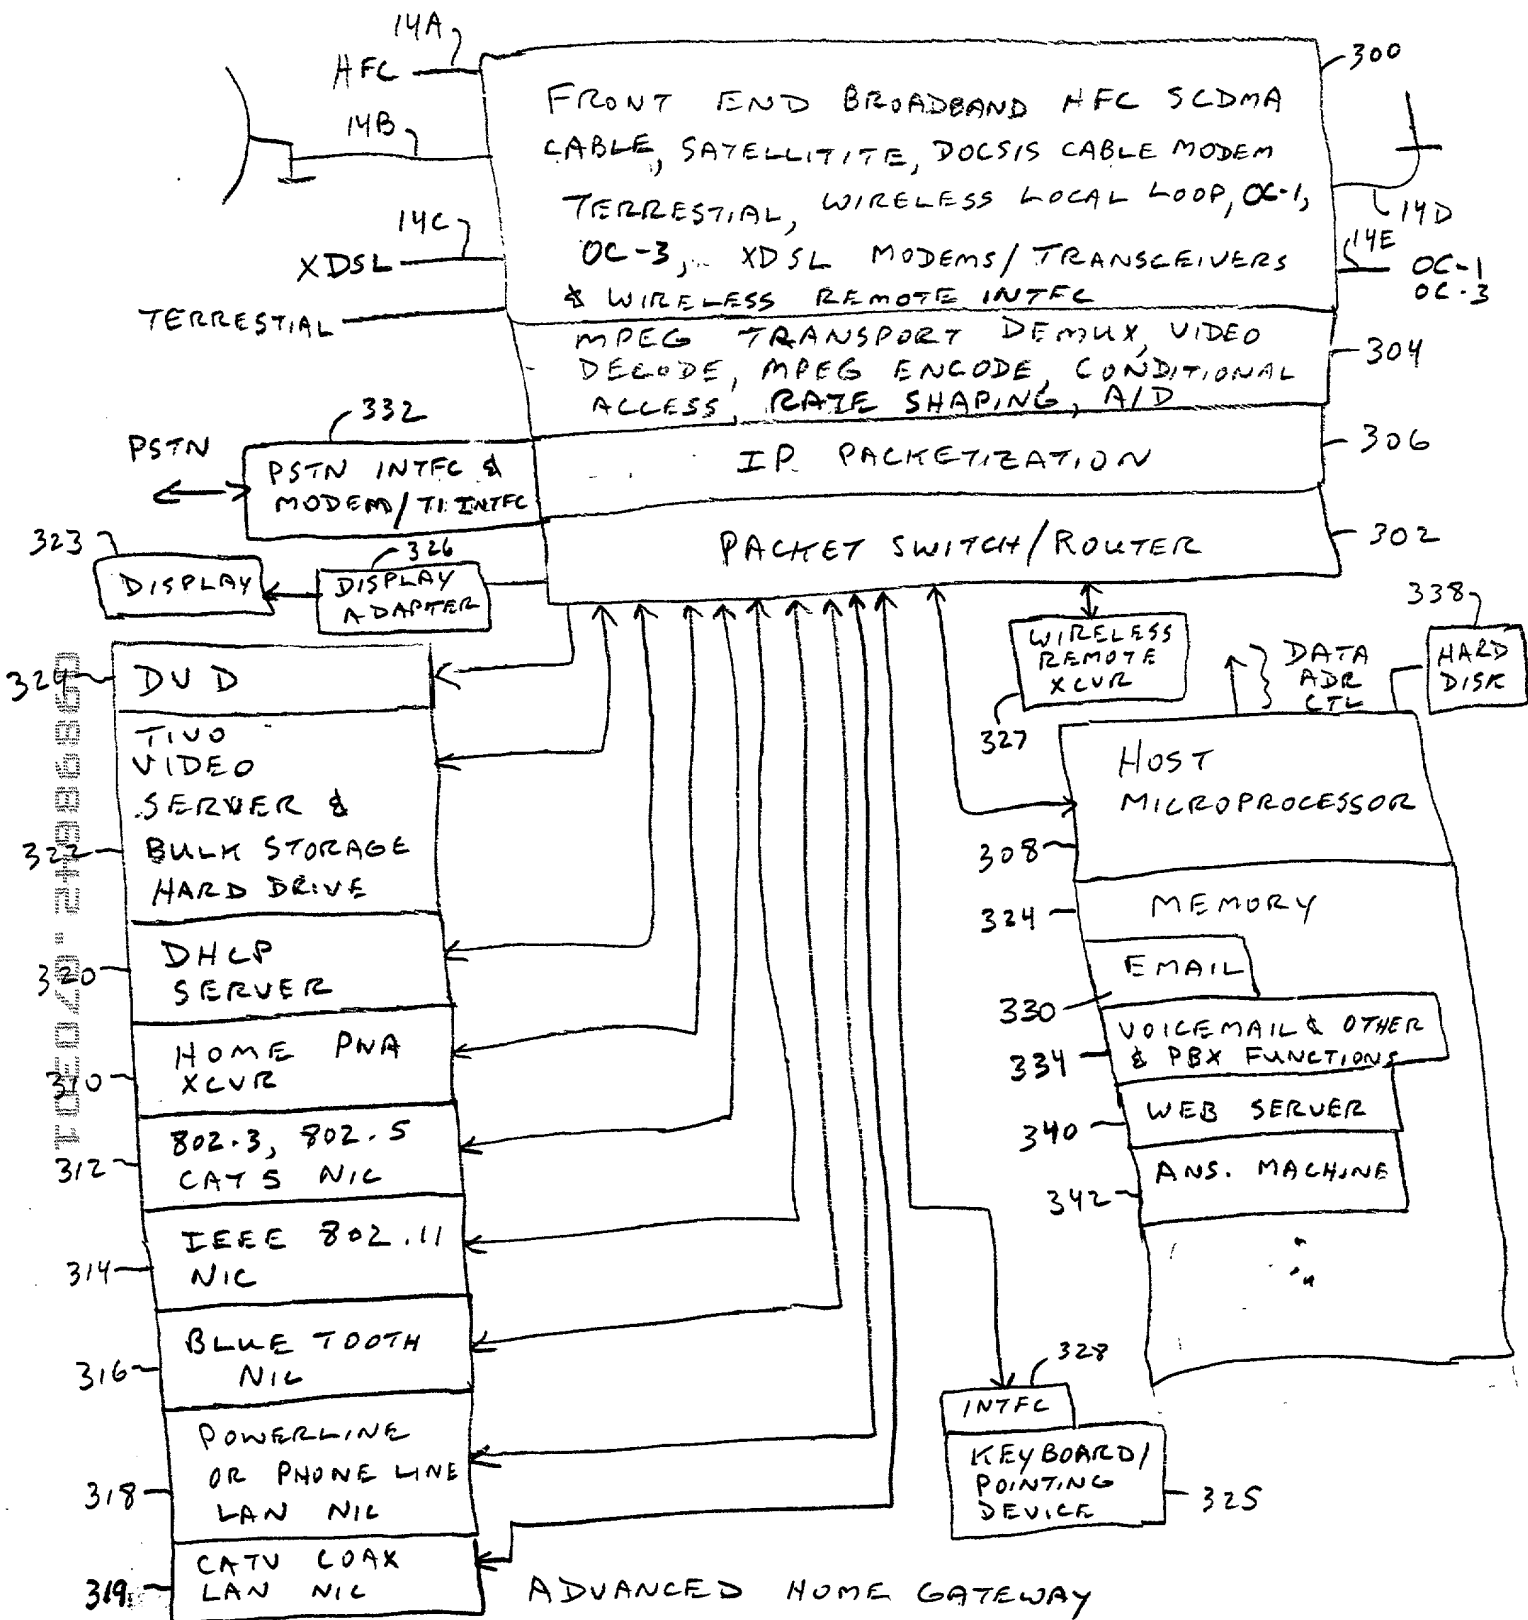 14A
HFC
300
FRONT END BROADBAND HFC SCDMA
CABLE, SATELLITITE, DOCSIS CABLE MODEM
TERRESTIAL, WIRELESS LOCAL LOOP, OC-1,
OC-3, XDSL MODEMS/TRANSCEIVERS
& WIRELESS REMOTE INTFC
14B
14C
XDSL
14D
14E
OC-1
OC-3
TERRESTIAL
MPEG TRANSPORT DEMUX, VIDEO
DECODE, MPEG ENCODE, CONDITIONAL
ACCESS, RATE SHAPING, A/D
304
332
PSTN
PSTN INTFC &
MODEM/T1 INTFC
IP PACKETIZATION
306
PACKET SWITCH/ROUTER
302
323
DISPLAY
326
DISPLAY
ADAPTER
WIRELESS
REMOTE
XCVR
327
DATA
ADR
CTL
338
HARD
DISK
324
DVD
TIVO
VIDEO
SERVER &
BULK STORAGE
HARD DRIVE
322
DHCP
SERVER
320
HOME PNA
XCVR
310
802.3, 802.5
CAT 5 NIC
312
IEEE 802.11
NIC
314
BLUE TOOTH
NIC
316
POWERLINE
OR PHONE LINE
LAN NIC
318
CATV COAX
LAN NIC
319
HOST
MICROPROCESSOR
308
MEMORY
324
EMAIL
330
VOICEMAIL & OTHER
& PBX FUNCTIONS
334
WEB SERVER
340
ANS. MACHINE
342
328
INTFC
KEYBOARD/
POINTING
DEVICE
325
ADVANCED HOME GATEWAY